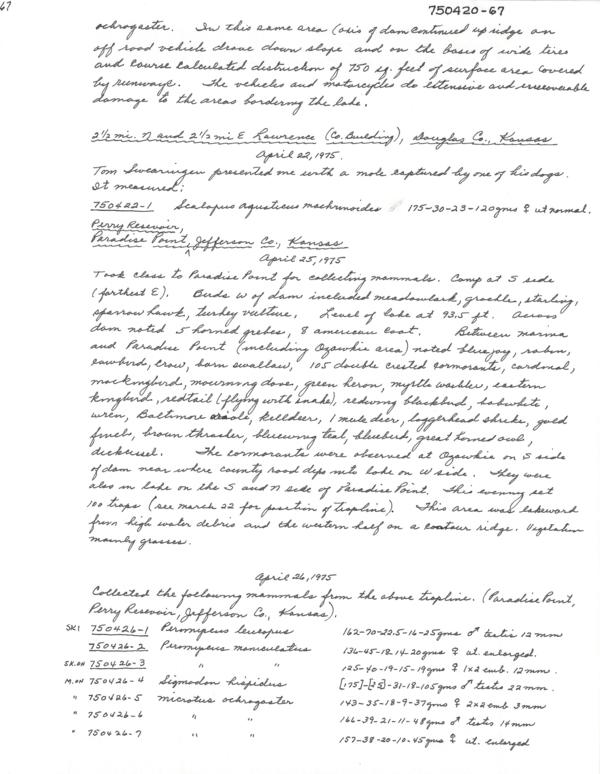 67
750420-67
ochrogaster. In this same area (axis of dam continued up ridge an
off road vehicle drove down slope and on the bases of wide tires
and course calculated distruction of 750 sq. feet of surface area covered
by runways. The vehicles and motorcycles do extensive and irrecoverable
damage to the areas bordering the lake.
2½ mi. N and 2½ mi E Lawrence (Co. Building), Douglas Co., Kansas
April 22, 1975.
Tom Swearingen presented me with a mole captured by one of his dogs.
It measured:
750422-1 Scalopus aquaticus machrinoides 175-30-23-120gms ♀ ut normal.
Perry Resevoir,
Paradise Point, Jefferson Co., Kansas
April 25, 1975
Took class to Paradise Point for collecting mammals. Camp at S side
(farthest E). Birds W of dam included meadowlark, grackle, starling,
sparrow hawk, turkey vulture. Level of lake at 93.5 ft. Across
dam noted 5 horned grebes, 8 american coot. Between marina
and Paradise Point (including Ozawkie area) noted bluejay, robin,
cowbird, crow, barn swallow, 105 double crested cormorants, cardinal,
mockingbird, mourning dove, green heron, myrtle warbler, eastern
kingbird, redtail (flying with snake), redwing blackbird, bobwhite,
wren, Baltimore oriole, killdeer, 1 mule deer, loggerhead shrike, gold
finch, brown thrasher, bluewing teal, bluebird, great horned owl,
dickcissel. The cormorants were observed at Ozawkie on S side
of dam near where county road dips into lake on W side. They were
also in lake on the S and N side of Paradise Point. This evening set
100 traps (see march 22 for position of trapline). This area was lakeward
from high water debris and the western half on a contour ridge. Vegetation
mainly grasses.
April 26, 1975
Collected the following mammals from the above trapline. (Paradise Point,
Perry Resevoir, Jefferson Co., Kansas).
SKI 750426-1 Peromyscus leucopus 162-70-22.5-16-25gms ♂ testis 12 mm
750426-2 Peromyscus maniculatus 136-45-18-14-20gms ♀ ut. enlarged.
SK.ON 750426-3 " " 125-40-19-15-19gms ♀ 1x2 emb. 12 mm.
M.ON 750426-4 Sigmodon hispidus [175]-[75]-31-18-105gms ♂ testes 22 mm.
" 750426-5 microtus ochrogaster 143-35-18-9-37gms ♀ 2x2 emb 3mm
" 750426-6 " " 166-39-21-11-48gms ♂ testis 14mm
" 750426-7 " " 157-38-20-10-45gms ♀ ut. enlarged